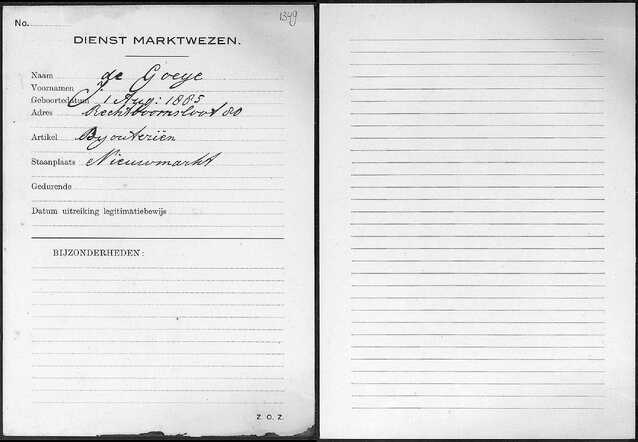 No. 1349
DIENST MARKTWEZEN.
Naam de Goeye
Voornamen J.
Geboortedatum 1 Aug: 1885
Adres Rechtboomsloot 80
Artikel Byouteriën
Staanplaats Nieuwmarkt
Gedurende
Datum uitreiking legitimatiebewijs
BIJZONDERHEDEN:
Z. O. Z.